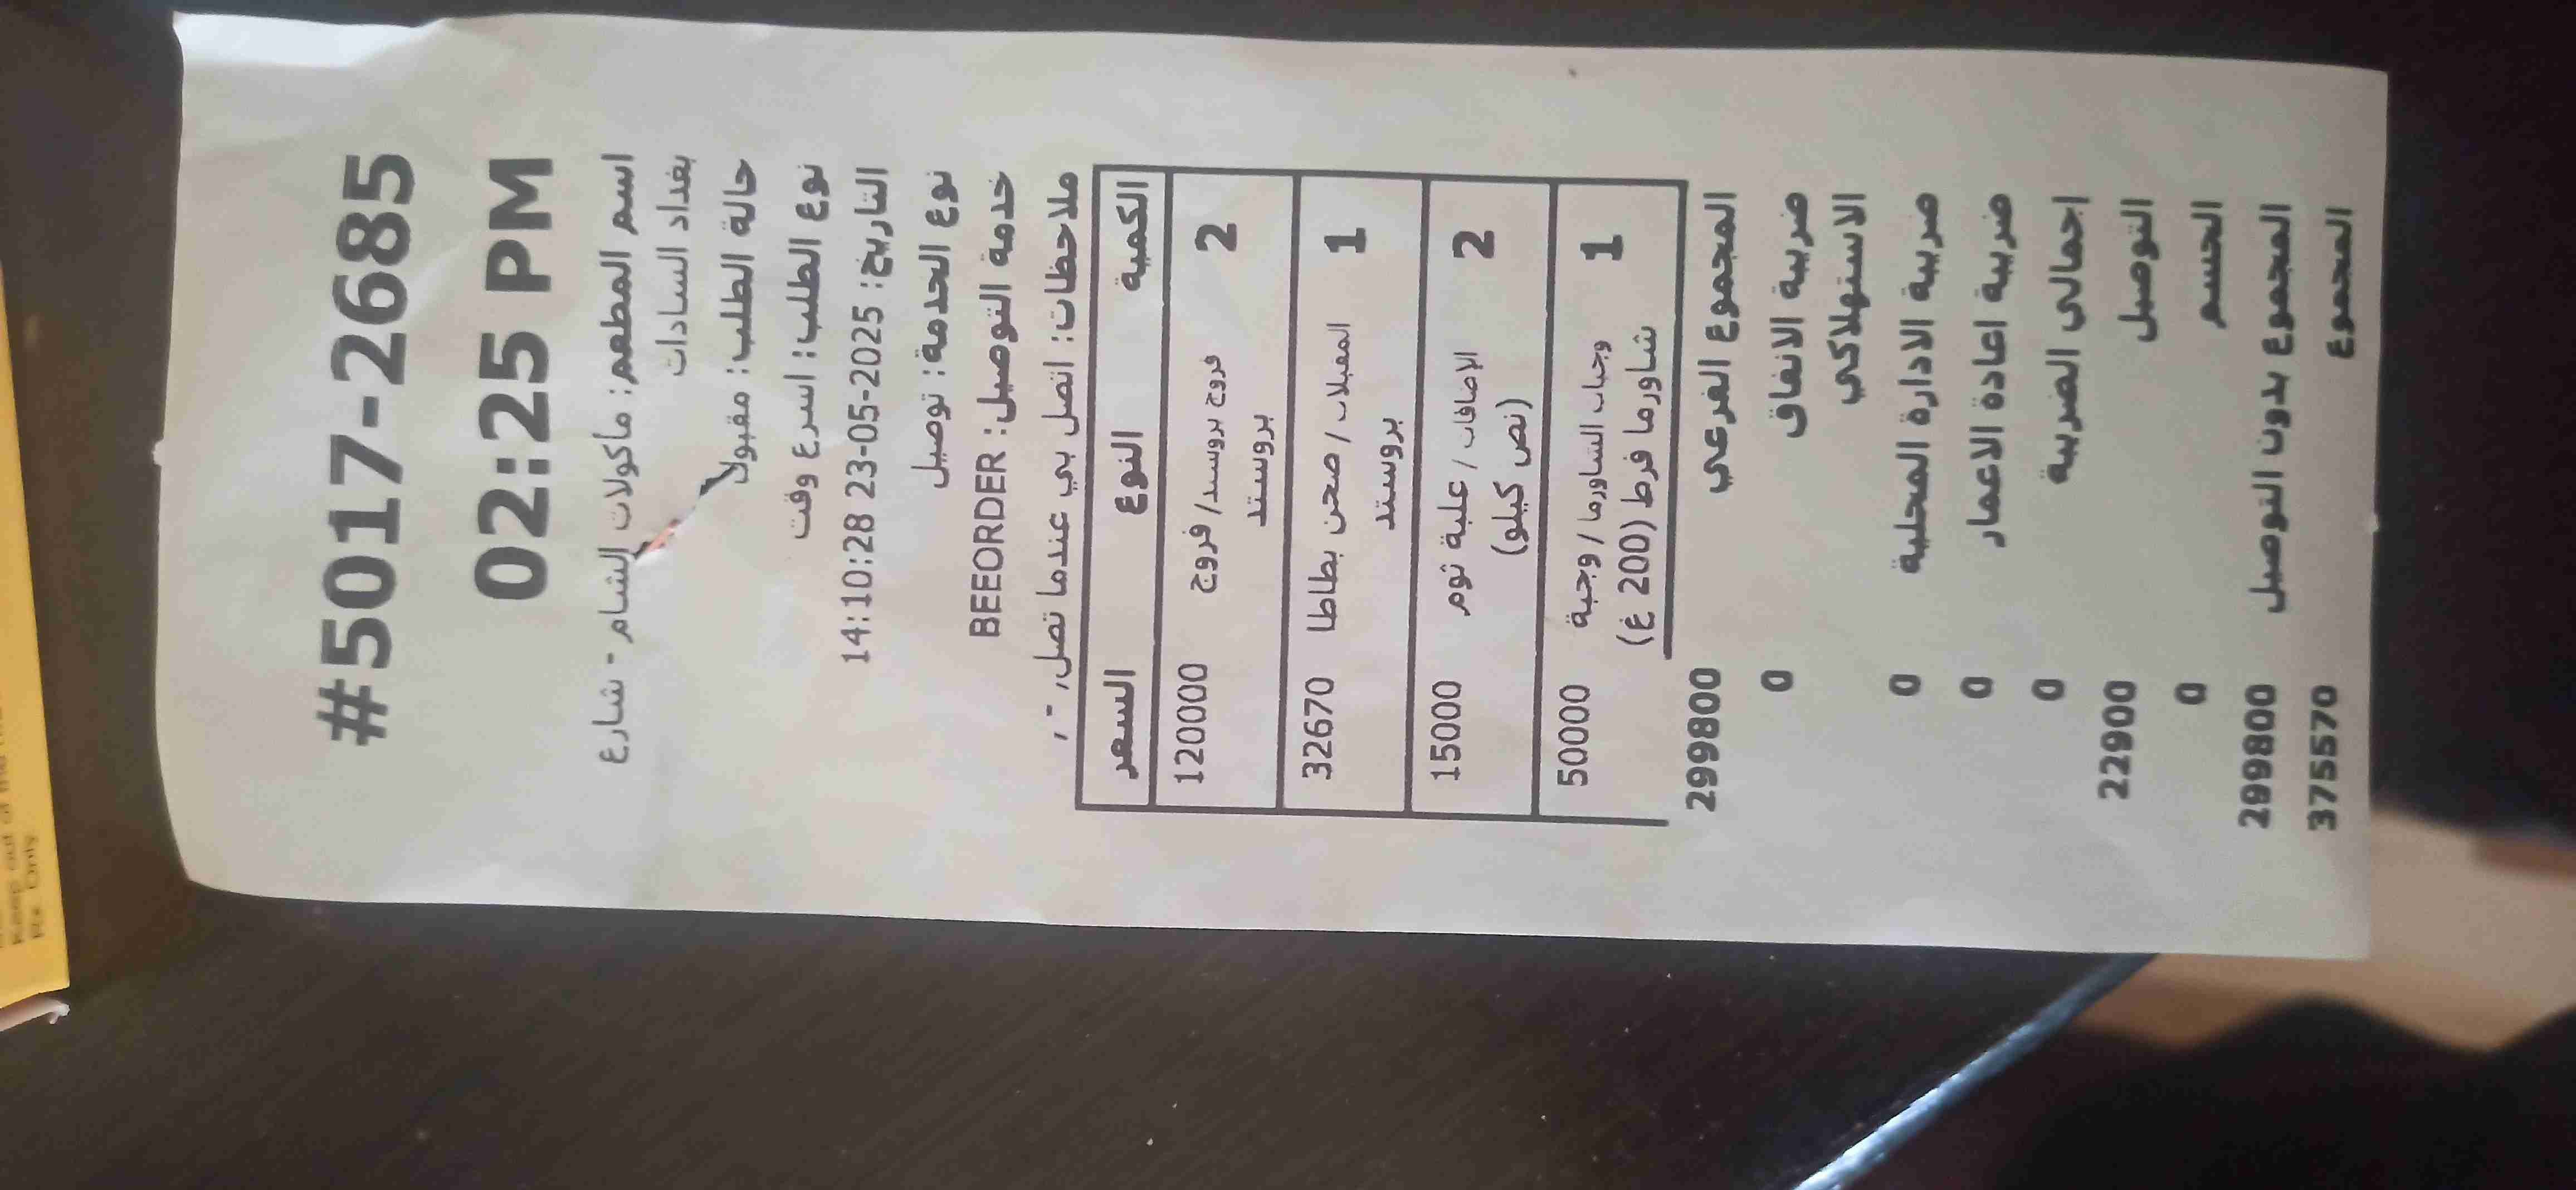 #5017-2685
02:25 PM
اسم المطعم: ماكولات الشام - شارع
بغداد السادات
حالة الطلب: مقبولا
نوع الطلب: اسرع وقت
التاريخ: 2025-05-23 14:10:28
نوع الخدمة: توصيل
خدمة التوصيل: BEEORDER
ملاحظات: اتصل بي عندما تصل, -,
الكمية النوع السعر
2 فروج بروستد/ فروج 120000
بروستد
1 المقبلات/ صحن بطاطا 32670
بروستد
2 الإضافات/ علبة ثوم 15000
(نص كيلو)
1 وجبات الشاورما/ وجبة 50000
شاورما فرط (200 غ)
المجموع الفرعي 299800
ضريبة الانفاق 0
الاستهلاكي
ضريبة الادارة المحلية 0
ضريبة اعادة الاعمار 0
إجمالي الضريبة 0
التوصيل 22900
الحسم 0
المجموع بدون التوصيل 299800
المجموع 375570
Rx Only